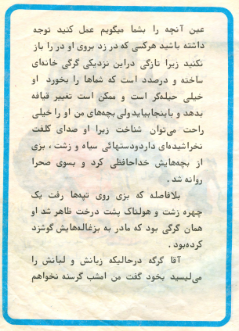 عین آنچه را بشما میگویم عمل کنید توجه
داشته باشید هرگسی که در زد بروی او در را باز
نکنید زیرا تازگی دراین نزدیکی گرگی خانه‌ای
ساخته و درصدد است که شماها را بخورد او
خیلی حیله‌گر است و ممکن است تغییر قیافه
بدهد و باینجابیاید ولی بچه‌های من او را خیلی
راحت می‌توان شناخت زیرا او صدای کلفت
نخراشیده‌ای دارد و دستهائی سیاه و زشت ، بزی
از بچه‌هایش خداحافظی کرد و بسوی صحرا
روانه شد .
بلافاصله که بزی روی تپه‌ها رفت یک
چهره زشت و هولناک پشت درخت ظاهر شد او
همان گرگی بود که مادر به بزغاله‌هایش گوشزد
کرده‌بود .
آقا گرگه درحالیکه زبانش و لبانش را
می‌لیسید بخود گفت من امشب گرسنه نخواهم